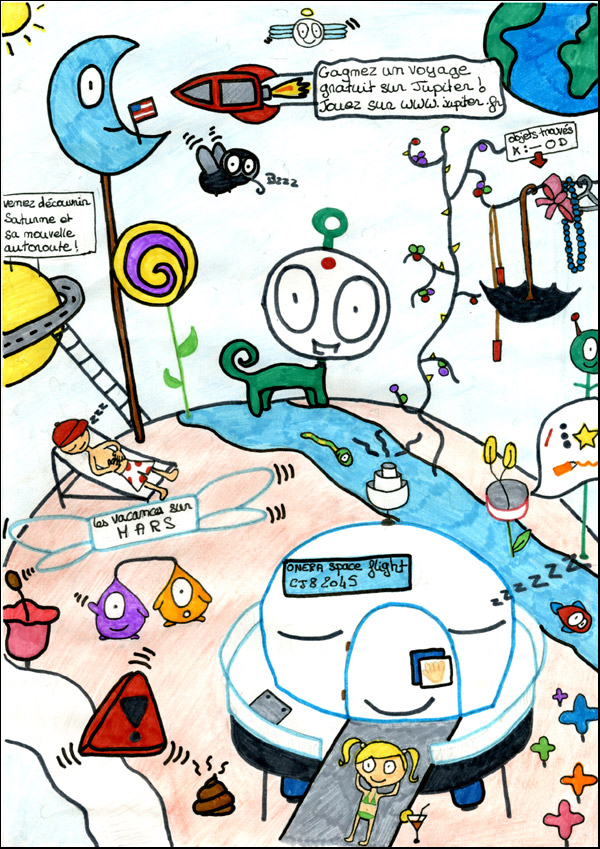 Gagnez un voyage
gratuit sur Jupiter !
Jouez sur www.jupiter.fr
objets trouvés
K : _ O D
Bzzz
venez découvrir
Saturne et
sa nouvelle
autoroute !
zzz
les vacances sur
MARS
ONERA space flight
CJ8 2045
zzzzzzz